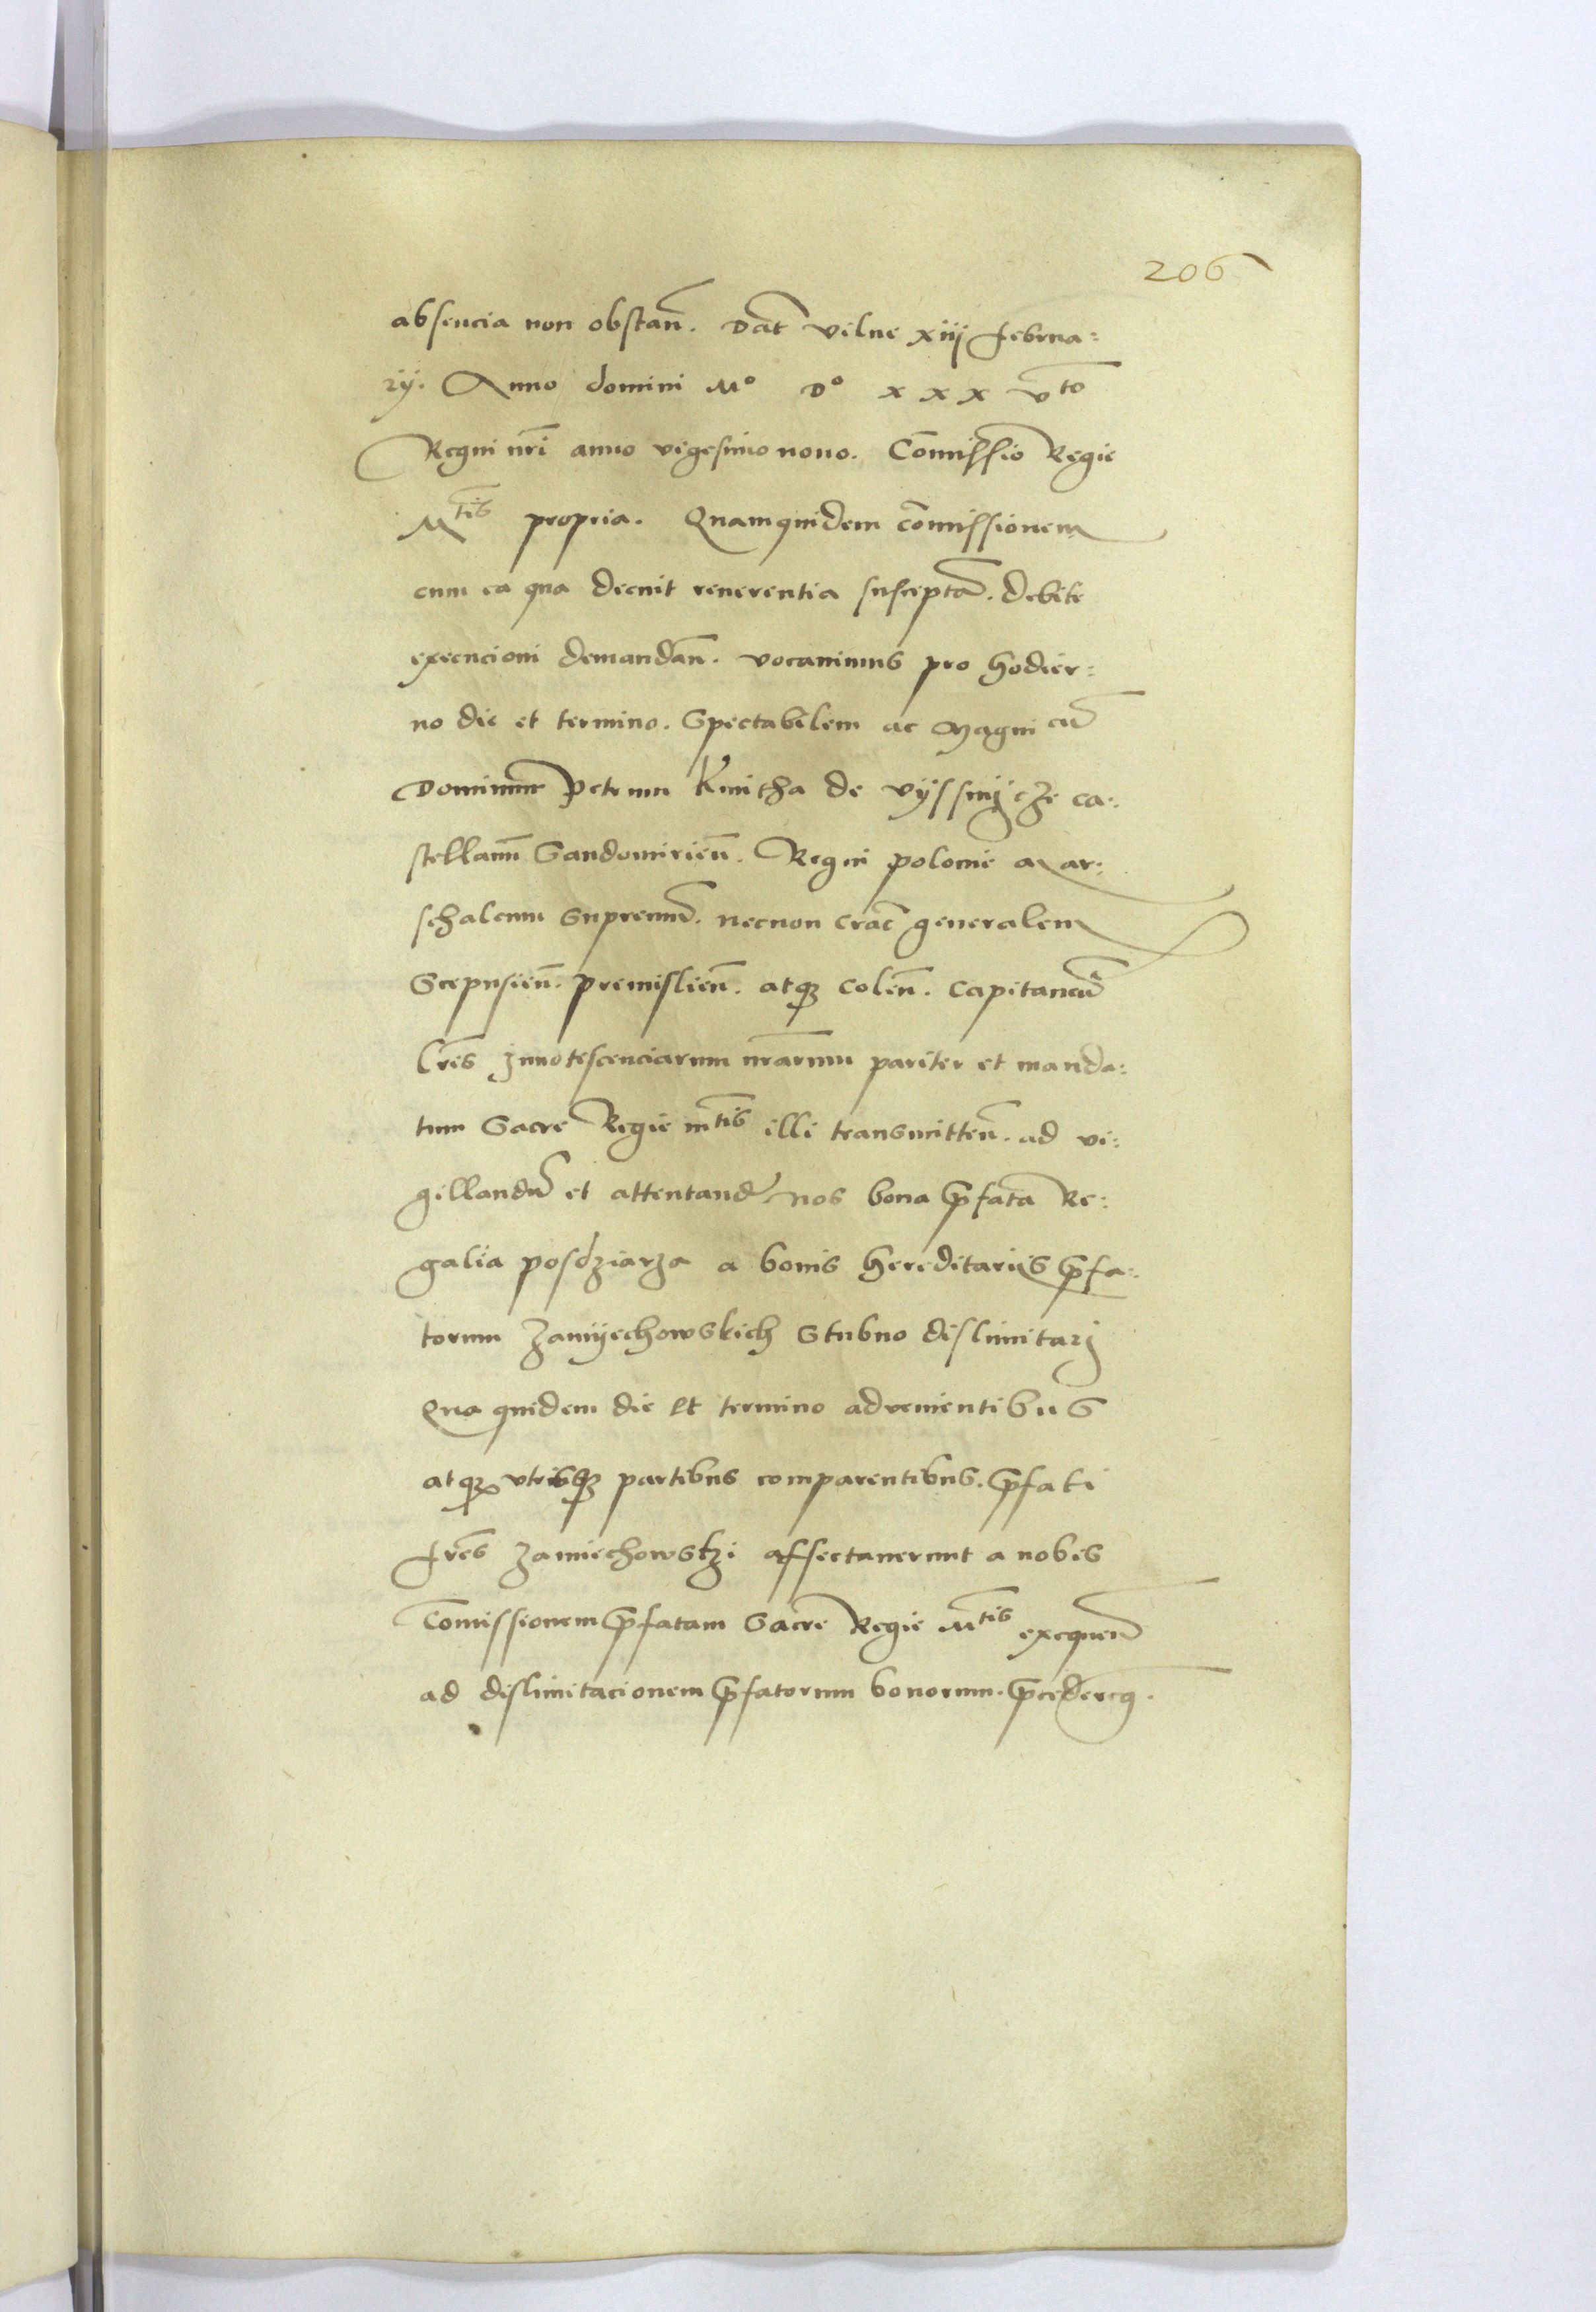 206
absencia non obstan̄. Dat̄ vilne xiij februa:
rij. Anno domini Mº Dº x x x vto
Regni nr̄i anno vigesimo nono. Com̄issio Regie
Mtis propria. Quamquidem com̄issionem
cum ea qua decuit reuerentia susceptā. debite
execucioni demandan̄. vocauimus pro hodier:
no die et termino. Spectabilem ac Magnicū
Dominum Petrum Kmitha de Vyssnijcze ca:
stellanū Sandomirien̄. Regni polonie mar:
schalcum Supremū. necnon Crac̄ generalem
Scepusien̄. premislien̄. atq3 colen̄. Capitaneū
lr̄es Innotescenciarum nr̄arum pariter et manda:
tum Sacre Regie mtis illi transmitten̄. ad vi:
gillandū et attentand̄ nos bona p̄fata Re:
galia posdziarza a bonis hereditarijs p̄fa:
torum Zamijechowskich Stubno dislimitarj
Qua quidem die et termino aduenientibus
atq3 vtrisq3 partibus comparentibus. p̄fati
fr̄es Zamiechowstzi affectauerunt a nobis
Com̄issionem p̄fatam Sacre Regie Mtis exequen̄
ad dislimitacionem p̄fatorum bonorum.